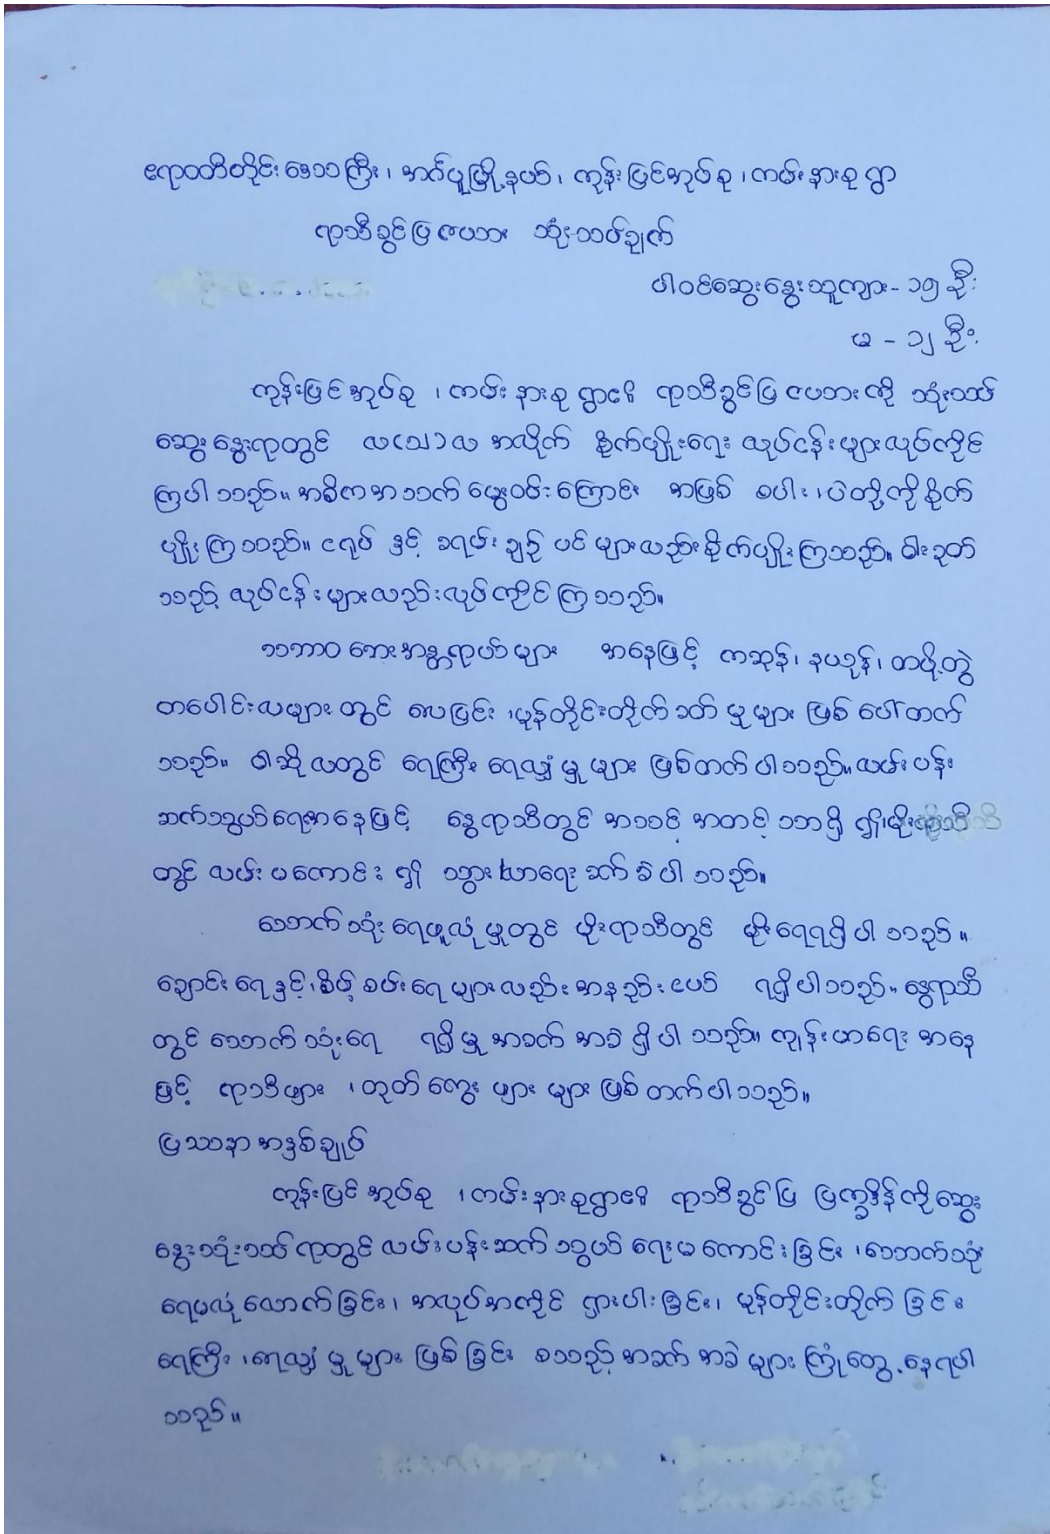 ဧရာဝတီတိုင်းဒေသကြီး၊ အင်္ဂပူမြို့နယ်၊ ကုန်းပြင်အုပ်စု၊ ကမ်းနားစုရွာ
ရာသီခွင်ပြဇယား သုံးသပ်ချက်
ပါဝင်ဆွေးနွေးသူကျား - ၁၅ ဦး
မ - ၁၂ ဦး
ကုန်းပြင်အုပ်စု ၊ ကမ်းနားစုရွာ၏ ရာသီခွင်ပြဇယားကို သုံးသပ်
ဆွေးနွေးရာတွင် လယ်သာလ အလိုက် စိုက်ပျိုးရေး လုပ်ငန်းများလုပ်ကိုင်
ကြပါသည်။ အဓိကအသက်မွေးဝမ်းကြောင်း အဖြစ် စပါး၊ ပဲတို့ကိုစိုက်
ပျိုးကြသည်။ ငရုပ် နှင့် ခရမ်းချဉ် ပင်များလည်းစိုက်ပျိုးကြသည်။ ဝါးခုတ်
သည့် လုပ်ငန်းများလည်းလုပ်ကိုင်ကြသည်။
သဘာဝဘေးအန္တရာယ်များ အနေဖြင့် ကဆုန်၊ နယုန်၊ တပို့တွဲ
တပေါင်းလများတွင် လေပြင်း ၊မုန်တိုင်းတိုက်ခတ်မှုများ ဖြစ်ပေါ်တက်
သည်။ ဝါဆိုလတွင် ရေကြီး ရေလျှံမှုများ ဖြစ်တက်ပါသည်။ လမ်းပန်း
ဆက်သွယ်ရေးအနေဖြင့် နွေရာသီတွင် အသင့် အတင့် သာရှိ၍၊ မိုးရာသီ
တွင် လမ်းမကောင်း၍ သွားလာရေး ခက်ခဲပါသည်။
သောက်သုံးရေဖူလုံမှုတွင် မိုးရာသီတွင် မိုးရေရရှိပါသည်။
ချောင်းရေနှင့်၊ စိမ့်စမ်းရေများလည်းအနည်းငယ် ရရှိပါသည်။ နွေရာသီ
တွင် သောက်သုံးရေ ရရှိမှုအခက်အခဲရှိပါသည်။ ကျန်းမာရေးအနေ
ဖြင့် ရာသီဖျား ၊တုတ်ကွေးဖျားများဖြစ်တက်ပါသည်။
ပြဿနာအနှစ်ချုပ်
ကုန်းပြင်အုပ်စု ၊ ကမ်းနားစုရွာ၏ ရာသီခွင်ပြ ပြက္ခဒိန်ကိုဆွေး
နွေးသုံးသပ်ရာတွင် လမ်းပန်းဆက်သွယ်ရေးမကောင်းခြင်း ၊သောက်သုံး
ရေမလုံလောက်ခြင်း၊ အလုပ်အကိုင် ရှားပါးခြင်း၊ မုန်တိုင်းတိုက်ခြင်း
ရေကြီး ၊ရေလျှံမှုများ ဖြစ်ခြင်း စသည့်အခက်အခဲများ ကြုံတွေ့နေရပါ
သည်။